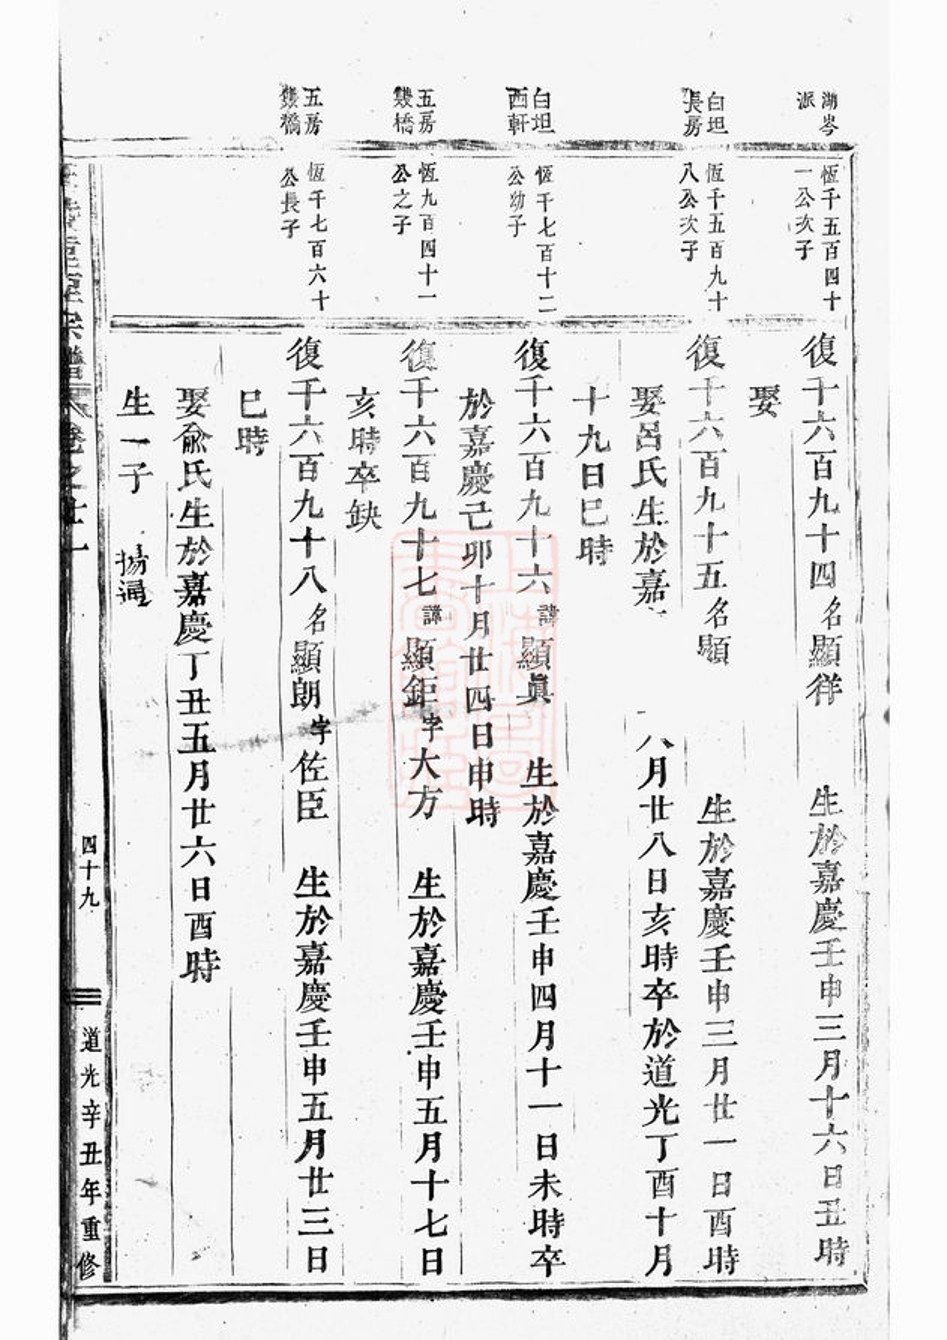 湖岑
派
恆千五百四十
一公次子
復千六百九十四名顯祥 生於嘉慶壬申三月十六日丑時
娶
白坦
長房
恆千五百九十
八公次子
復千六百九十五名顯 生於嘉慶壬申三月廿一日酉時
娶呂氏生於嘉 八月廿八日亥時卒於道光丁酉十月
十九日巳時
白坦
西軒
恆千七百十二
公幼子
復千六百九十六諱顯眞 生於嘉慶壬申四月十一日未時卒
於嘉慶己卯十月廿四日申時
五房
雙橋
恆九百四十一
公之子
復千六百九十七諱顯鉅字大方 生於嘉慶壬申五月十七日
亥時卒缺
五房
雙橋
恆千七百六十
公長子
復千六百九十八名顯朗字佐臣 生於嘉慶壬申五月廿三日
巳時
娶俞氏生於嘉慶丁丑五月廿六日酉時
生一子 揚通
宗譜 卷之廿一 四十九 道光辛丑年重修